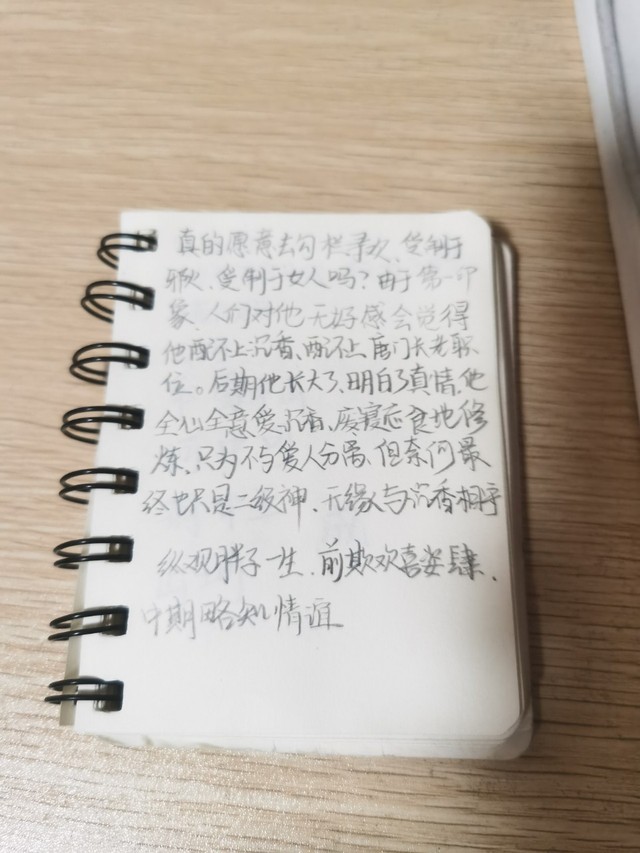 真的愿意去勾栏寻欢、受制于
欲、受制于女人吗?由于第一印
象、人们对他无好感会觉得
他配不上沉香、配不上唐门长老职
位。后期他长大了、明白了真情、他
全心全意爱沉香、废寝忘食地修
炼、只为不与爱人分离、但奈何最
终也只是二级神、无缘与沉香相守
纵观胖子一生、前期欢喜姿肆、
中期略知情谊